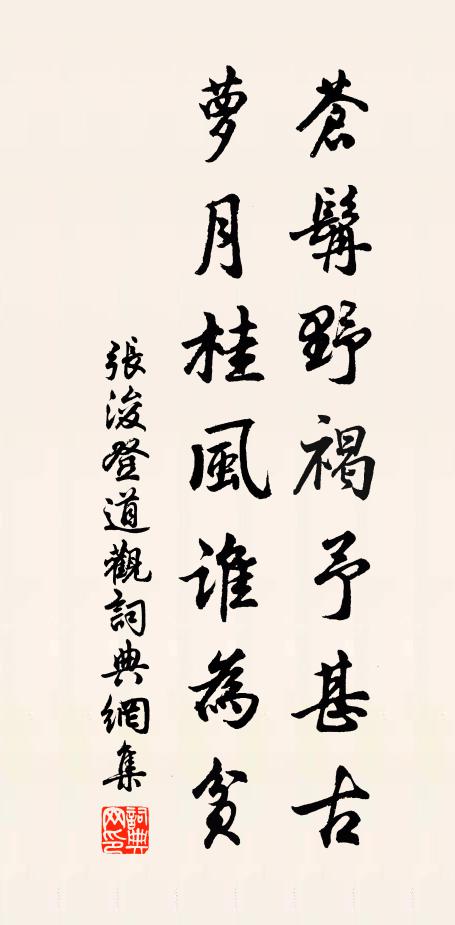 蒼髯野褐予甚古
夢月桂風誰為貧
張浚登道觀詞典網集
詞典网印